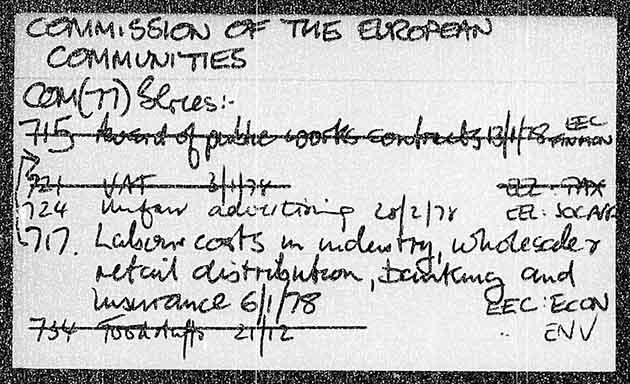 COMMISSION OF THE EUROPEAN
COMMUNITIES
COM(77) Series:-
715 Award of public works contracts 13/1/78 EEC
FINANCIAL
721 VAT 3/1/78 EEC: TAX
724 Unfair advertising 28/2/78 EEC: SOC AFF
717. Labour costs in industry, wholesale &
retail distribution, banking and
insurance 6/1/78 EEC: ECON
734 Foodstuffs 21/12 .. ENV